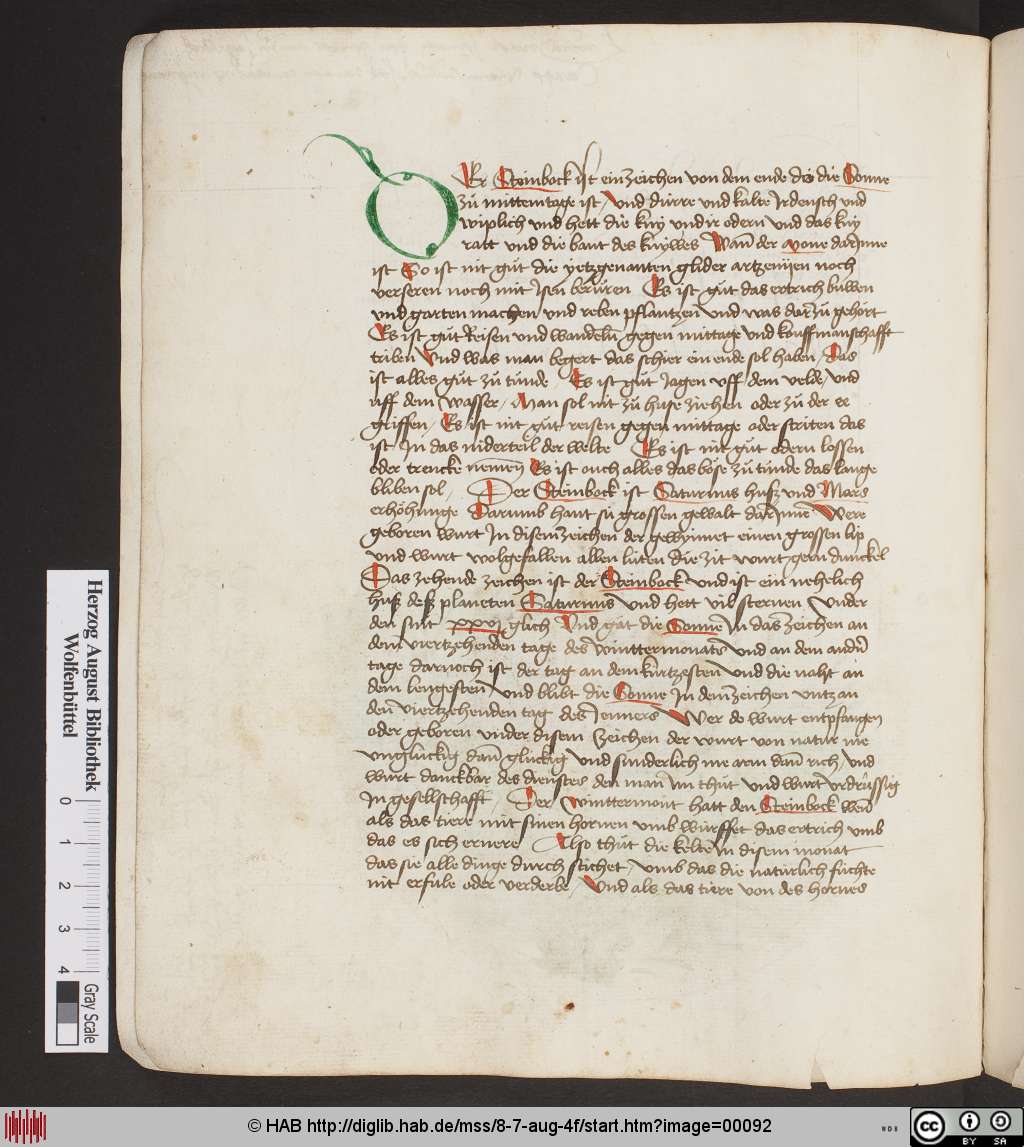 DEr Steinbock ist ein zeichen von dem ende do die Sonne
zů mittemtage ist / Und dürre und kalte Irdensch und
wiplich und hett die kny und ir odern und das kny
ratt und die hant des knywes Wañ der mone dar Inne
ist So ist nit gůt die yetzgenanten glider artzenyen noch
verseren noch mit Isen berüren Es ist gůt das ertrich buwen
und garten machen und reben pflantzen und was dar zů gehört
Es ist gůt Reisen und wandeln gegen mittage und kouffmanschafft
triben Und was man begert das schier ein ende sol haben / Das
ist alles gůt zů tůnde / Es ist gůt Jagen uff dem velde / und
uff dem wasser / Man sol nit zů huse ziehen oder zů der ee
griffen / Es ist nit gůt reisen gegen mittage oder striten das
ist In das niderteil der welte Es ist nit gůt odern lossen
oder trencke nemmen Es ist ouch alles das böse zů tůnde das lange
bliben sol / Der Steinbock ist Saturnus husz und Mars
erhöhunge Darumb hant sü grossen gewalt dar Inne Were
geboren wurt In disem zeichen der gewynnet einen grossen lip
und wurt wolgefallen allen lüten die zit wurt gern dunckel
Das zehende zeichen ist der Steinbock und ist ein nehelich
husz desz planeten Saturnus und hett vil sternen Under
den sint xxvj glich Und gat die Sonne In das zeichen an
dem viertzehenden tage des winttermonats und an dem andern
tage darnoch ist der tag an dem kürtzesten und die naht an
dem lengesten Und blibt die Sonne In dem zeichen untz an
den viertzehenden tag des Jenners Wer do wurt entpfangen
oder geboren under disem Zeichen der wurt von natur me
unglückig dañ glückig und sünderlich me arm dañ rich / Und
wurt danckbar des dienstes den man Im thůt und wurt Urdrüssig
In gesellschafft / Der winttermont hatt den Steinbock weñ
als das tiere mit sinen hornen umb würffet das ertrich umb
das es sich ernere Also thůt die kelte In disem monat
das sie alle dinge durch stichet / umb das die natürlich füchte
nit erfule oder verderbe / Und als das tiere von des hornes
Herzog August Bibliothek
Wolfenbüttel
0 1 2 3 4
Gray Scale
© HAB http://diglib.hab.de/mss/8-7-aug-4f/start.htm?image=00092
WDB
cc BY SA